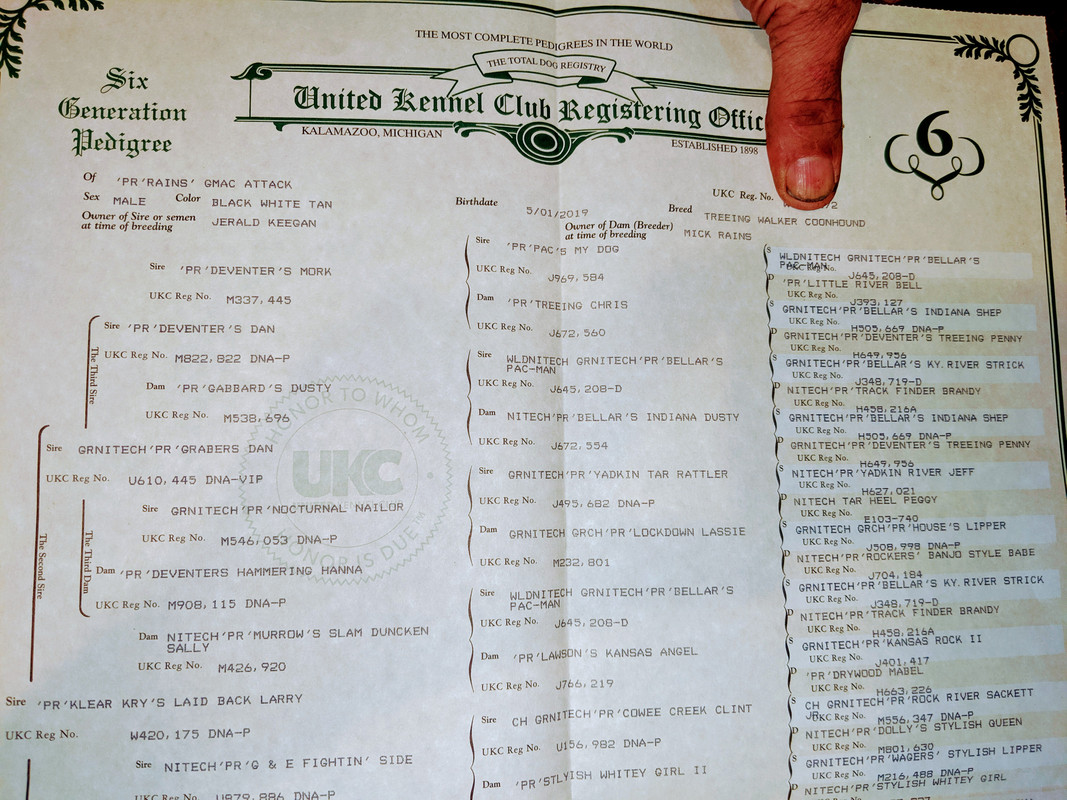 THE MOST COMPLETE PEDIGREES IN THE WORLD
THE TOTAL DOG REGISTRY
Six
Generation
Pedigree
United Kennel Club Registering
KALAMAZOO, MICHIGAN
ESTABLISHED 1898
6
Of 'PR'RAINS' GMAC ATTACK
Sex MALE Color BLACK WHITE TAN
Owner of Sire or semen
at time of breeding JERALD KEEGAN
Birthdate 5/01/2019
UKC Reg. No.
Breed TREEING WALKER COONHOUND
Owner of Dam (Breeder)
at time of breeding MICK RAINS
Sire 'PR'DEVENTER'S MORK
UKC Reg No. M337,445
The Third Sire
Sire 'PR'DEVENTER'S DAN
UKC Reg No. M822,822 DNA-P
Dam 'PR'GABBARD'S DUSTY
UKC Reg No. M538,696
Sire GRNITECH'PR'GRABERS DAN
UKC Reg No. U610,445 DNA-VIP
Sire GRNITECH'PR'NOCTURNAL NAILOR
UKC Reg No. M546,053 DNA-P
The Second Sire
The Third Dam
Dam 'PR'DEVENTERS HAMMERING HANNA
UKC Reg No. M908,115 DNA-P
Dam NITECH'PR'MURROW'S SLAM DUNCKEN
SALLY
UKC Reg No. M426,920
Sire 'PR'KLEAR KRY'S LAID BACK LARRY
UKC Reg No. W420,175 DNA-P
Sire NITECH'PR'G & E FIGHTIN' SIDE
UKC Reg No. U979,886 DNA-P
HONOR TO WHOM
UKC
HONOR IS DUE
Sire 'PR'PAC'S MY DOG
UKC Reg No. J969,584
Dam 'PR'TREEING CHRIS
UKC Reg No. J672,560
Sire WLDNITECH GRNITECH'PR'BELLAR'S
PAC-MAN
UKC Reg No. J645,208-D
Dam NITECH'PR'BELLAR'S INDIANA DUSTY
UKC Reg No. J672,554
Sire GRNITECH'PR'YADKIN TAR RATTLER
UKC Reg No. J495,682 DNA-P
Dam GRNITECH GRCH'PR'LOCKDOWN LASSIE
UKC Reg No. M232,801
Sire WLDNITECH GRNITECH'PR'BELLAR'S
PAC-MAN
UKC Reg No. J645,208-D
Dam 'PR'LAWSON'S KANSAS ANGEL
UKC Reg No. J766,219
Sire CH GRNITECH'PR'COWEE CREEK CLINT
UKC Reg No. U156,982 DNA-P
Dam 'PR'STLYISH WHITEY GIRL II
S WLDNITECH GRNITECH'PR'BELLAR'S
PAC-MAN
UKC Reg No. J645,208-D
D 'PR'LITTLE RIVER BELL
UKC Reg No. J393,127
S GRNITECH'PR'BELLAR'S INDIANA SHEP
UKC Reg No. H505,669 DNA-P
D GRNITECH'PR'DEVENTER'S TREEING PENNY
UKC Reg No. H649,956
S GRNITECH'PR'BELLAR'S KY.RIVER STRICK
UKC Reg No. J348,719-D
D NITECH'PR'TRACK FINDER BRANDY
UKC Reg No. H458,216A
S GRNITECH'PR'BELLAR'S INDIANA SHEP
UKC Reg No. H505,669 DNA-P
D GRNITECH'PR'DEVENTER'S TREEING PENNY
UKC Reg No. H649,956
S NITECH'PR'YADKIN RIVER JEFF
UKC Reg No. H627,021
D NITECH TAR HEEL PEGGY
UKC Reg No. E103-740
S GRNITECH GRCH'PR'HOUSE'S LIPPER
UKC Reg No. J508,998 DNA-P
D NITECH'PR'ROCKERS' BANJO STYLE BABE
UKC Reg No. J704,184
S GRNITECH'PR'BELLAR'S KY.RIVER STRICK
UKC Reg No. J348,719-D
D NITECH'PR'TRACK FINDER BRANDY
UKC Reg No. H458,216A
S GRNITECH'PR'KANSAS ROCK II
UKC Reg No. J401,417
D 'PR'DRYWOOD MABEL
UKC Reg No. H663,226
S CH GRNITECH'PR'ROCK RIVER SACKETT
JR
UKC Reg No. M556,347 DNA-P
D NITECH'PR'DOLLY'S STYLISH QUEEN
UKC Reg No. M801,630
S GRNITECH'PR'WAGERS' STYLISH LIPPER
UKC Reg No. M216,488 DNA-P
D NITECH'PR'STYLISH WHITEY GIRL